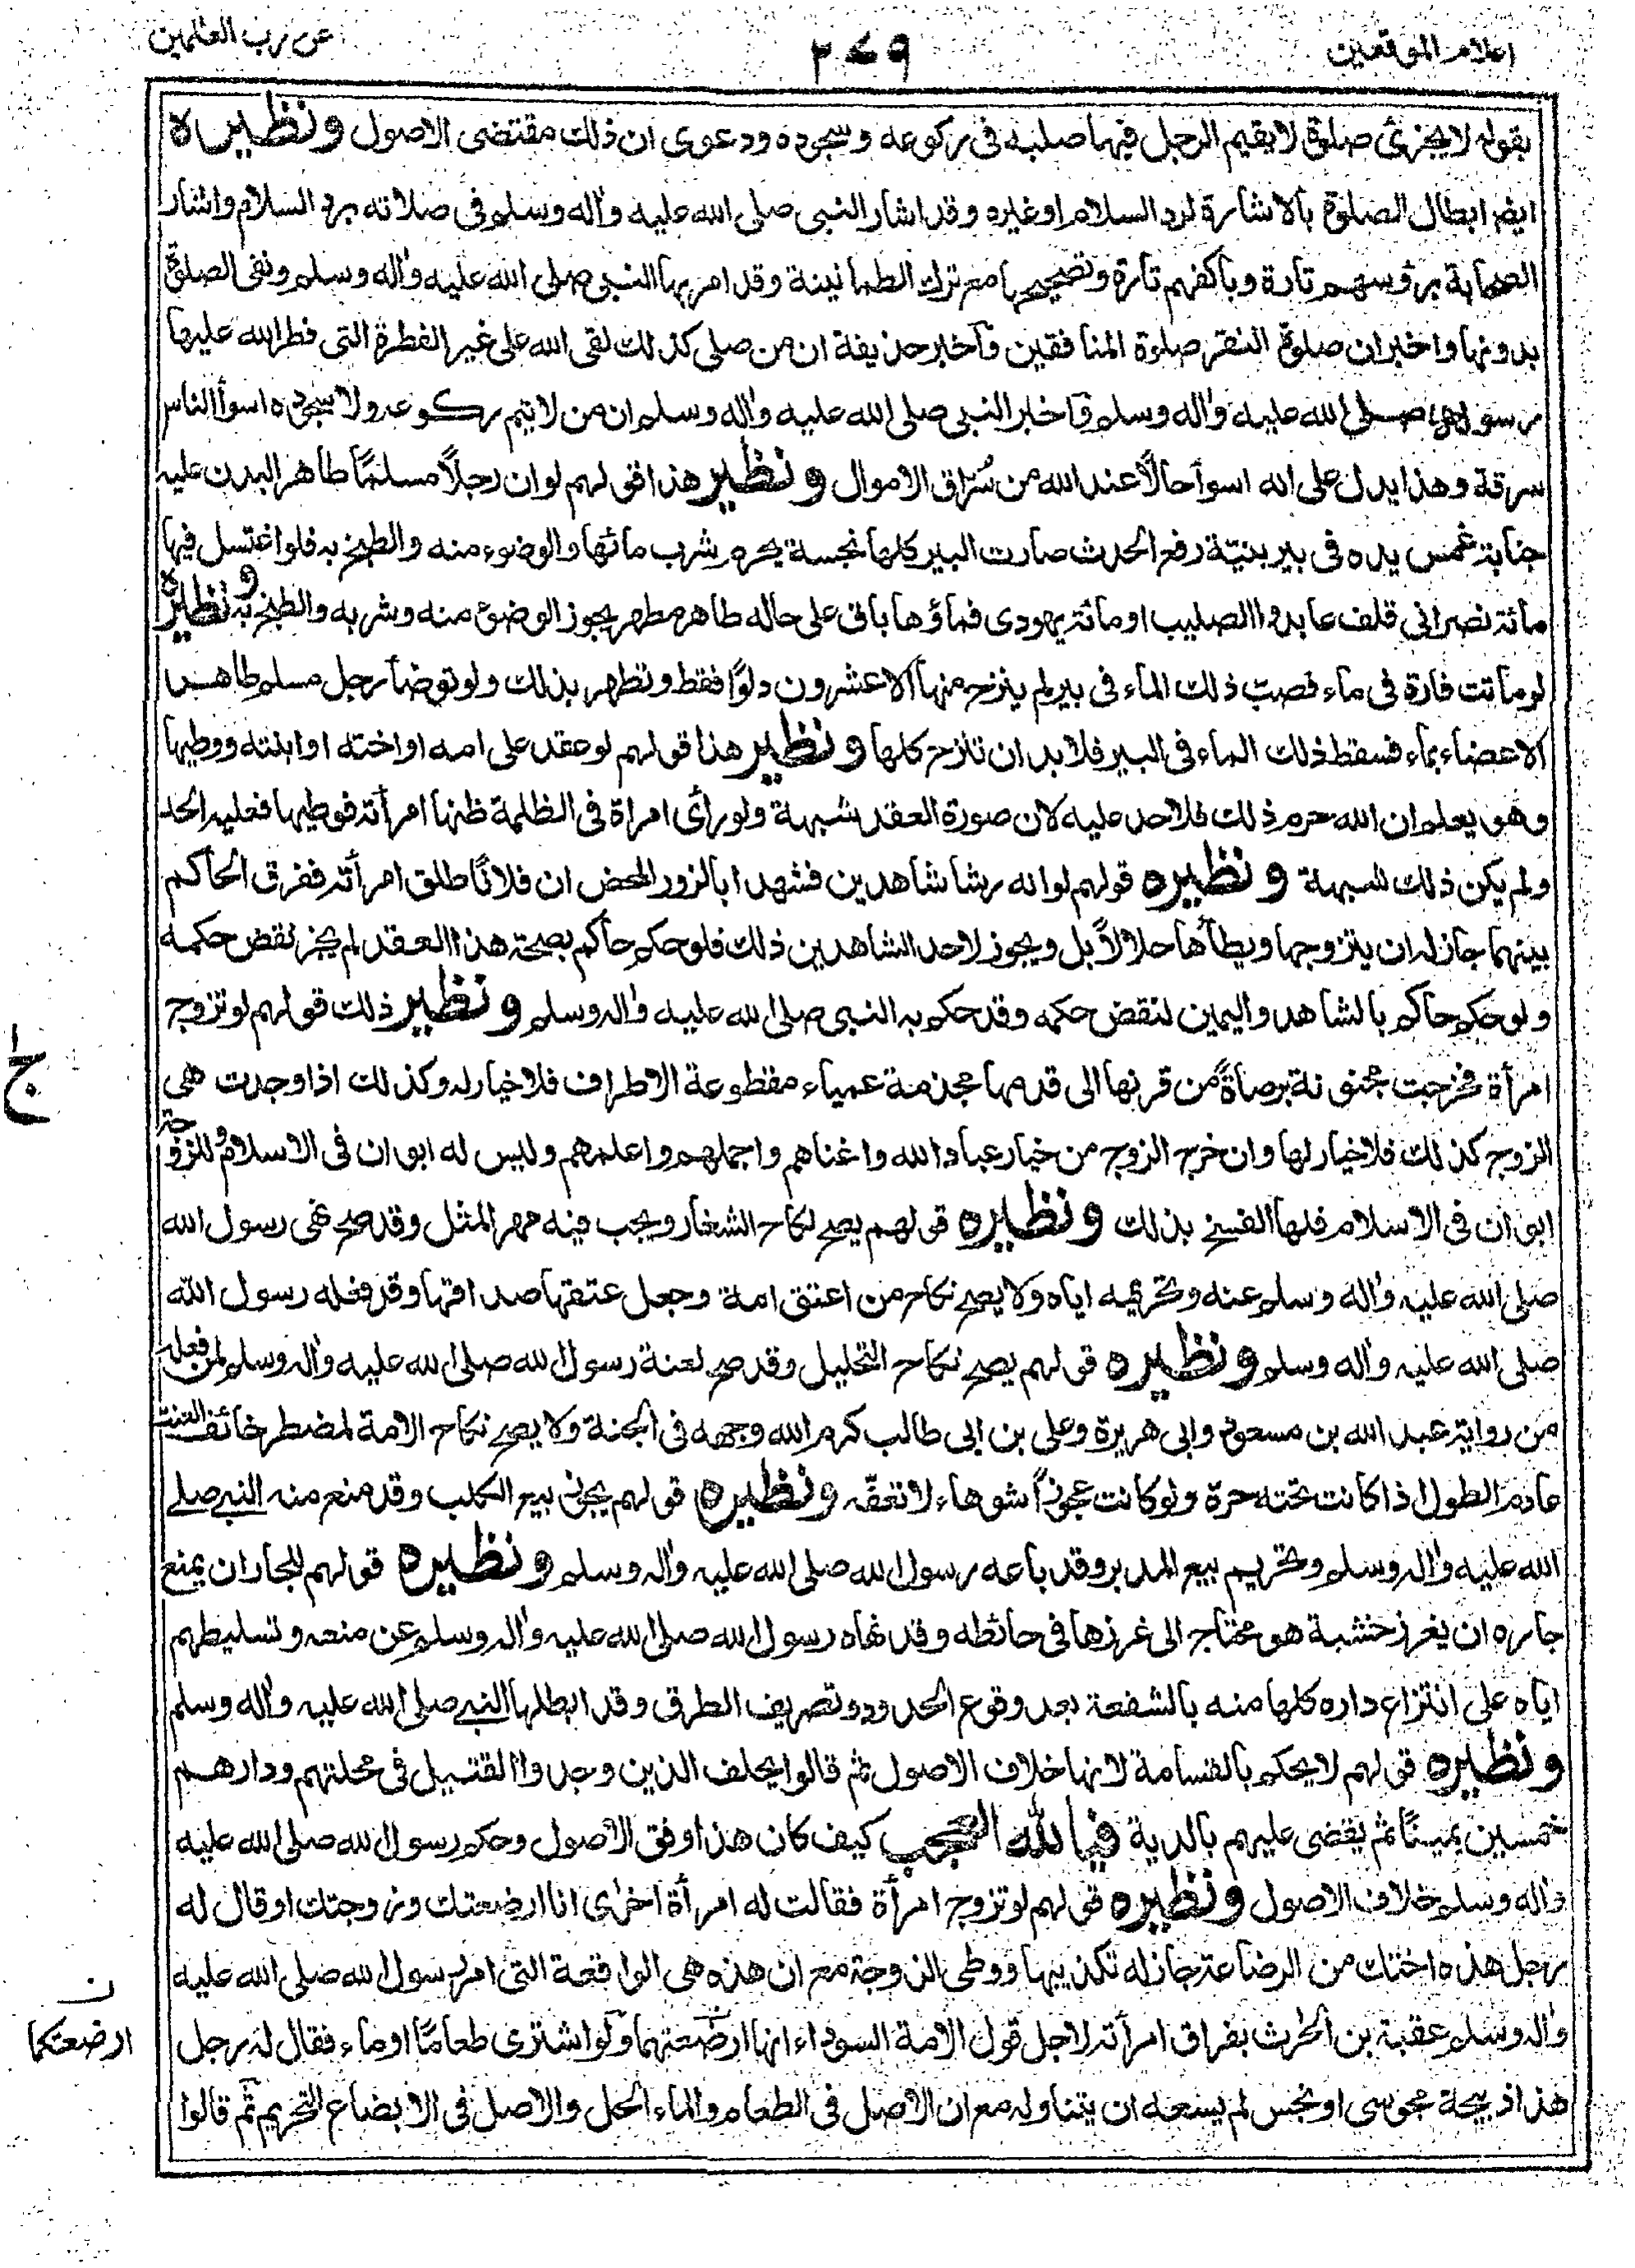 اعلام الموقعين
٢٧٩
عن رب العلمين
بقوله لا يجزئ صلوة لا يقيم الرجل فيها صلبه فى ركوعه وسجوده ودعوى ان ذلك مقتضى الاصول ونظيره
ايضا ابطال الصلوة بالاشارة لرد السلام او غيره وقد اشار النبى صلى الله عليه واله وسلم فى صلاته برد السلام واشار
الصحابة برؤسهم تارة وباكفهم تارة وتصحيحها مع ترك الطمانينة وقد امر بها النبى صلى الله عليه واله وسلم ونفى الصلوة
بدونها واخبر ان صلوة النقر صلوة المنافقين وأخبر حذيفة ان من صلى كذلك لقى الله على غير الفطرة التى فطر الله عليها
رسوله صلى الله عليه واله وسلم وأخبر النبى صلى الله عليه واله وسلم ان من لا يتم ركوعه ولا سجوده اسوأ الناس
سرقة وهذا يدل على انه اسوأ حالاً عند الله من سُرّاق الاموال ونظير هذا قولهم لو ان رجلاً مسلمًا طاهر البدن عليه
جنابة غمس يده فى بير بنيّة رفع الحدث صارت البير كلها نجسة يحرم شرب مائها والوضوء منه والطبخ به فلو اغتسل فيها
مائة نصرانى قلف عابدوا الصليب او مائة يهودى فماؤها باق على حاله طاهر مطهر يجوز الوضوء منه وشربه والطبخ به ونظيره
لو ماتت فارة فى ماء فصبّ ذلك الماء فى بير لم ينزح منها الا عشرون دلوًا فقط وتطهر بذلك ولو توضأ رجل مسلم طاهر
الاعضاء بماء فسقط ذلك الماء فى البير فلا بد ان تنزح كلها ونظير هذا قولهم لو عقد على امه او اخته او ابنته ووطيها
وهو يعلم ان الله حرم ذلك فلا حد عليه لان صورة العقد شبهة ولو رأى امراة فى الظلمة ظنها امرأته فوطيها فعليه الحد
ولم يكن ذلك للشبهة ونظيره قولهم لو انه رشا شاهدين فشهدا بالزور المحض ان فلانًا طلق امرأته ففرق الحاكم
بينهما جاز له ان يتزوجها ويطأها حلالاً بل ويجوز لاحد الشاهدين ذلك فلو حكم حاكم بصحة هذا العقد لم يجز نقض حكمه
ولو حكم حاكم بالشاهد واليمين لنقض حكمه وقد حكم به النبى صلى الله عليه واله وسلم ونظير ذلك قولهم لو تزوج
امرأة فخرجت مجنونة برصاءً من قرنها الى قدمها مجذمة عمياء مقطوعة الاطراف فلا خيار له وكذلك اذا وجدت هى
الزوج كذلك فلا خيار لها وان خرج الزوج من خيار عباد الله واغناهم واجملهم واعلمهم وليس له ابوان فى الاسلام وللزوجة
ابوان فى الاسلام فلها الفسخ بذلك ونظيره قولهم يصح نكاح الشغار ويجب فيه مهر المثل وقد صح نهى رسول الله
صلى الله عليه واله وسلم عنه وتحريمه اياه ولا يصح نكاح من اعتق امة وجعل عتقها صداقها وقد فعله رسول الله
صلى الله عليه واله وسلم ونظيره قولهم يصح نكاح التحليل وقد صح لعنة رسول الله صلى الله عليه واله وسلم لمن فعله
من رواية عبد الله بن مسعود وابى هريرة وعلى بن ابى طالب كرم الله وجهه فى الجنة ولا يصح نكاح الامة لمضطر خائف العنت
عادم الطول اذا كانت تحته حرة ولو كانت عجوزًا شوهاء لا تعفّه ونظيره قولهم يجوز بيع الكلب وقد منع منه النبى صلى
الله عليه واله وسلم وتحريم بيع المدبر وقد باعه رسول الله صلى الله عليه واله وسلم ونظيره قولهم للجار ان يمنع
جاره ان يغرز خشبة هو محتاج الى غرزها فى حائطه وقد نهاه رسول الله صلى الله عليه واله وسلم عن منعه وتسليطهم
اياه على انتزاع داره كلها منه بالشفعة بعد وقوع الحدود وتصريف الطرق وقد ابطلها النبى صلى الله عليه واله وسلم
ونظيره قولهم لا يحكم بالقسامة لانها خلاف الاصول ثم قالوا يحلف الذين وجدوا القتيل فى محلتهم ودارهم
خمسين يمينًا ثم يقضى عليهم بالدية فيا لله العجب كيف كان هذا وفق الاصول وحكم رسول الله صلى الله عليه
واله وسلم خلاف الاصول ونظيره قولهم لو تزوج امرأة فقالت له امرأة اخرى انا ارضعتك وزوجتك او قال له
رجل هذه اختك من الرضاعة جاز له تكذيبها ووطى الزوجة مع ان هذه هى الواقعة التى امر رسول الله صلى الله عليه
واله وسلم عقبة بن الحرث بفراق امرأته لاجل قول الامة السوداء انها ارضعتهما ولو اشترى طعامًا او ماء فقال له رجل
هذا ذبيحة مجوسى او نجس لم يسعه ان يتناوله مع ان الاصل فى الطعام والماء الحل والاصل فى الابضاع التحريم ثم قالوا
ج
ن
ارضعتكما